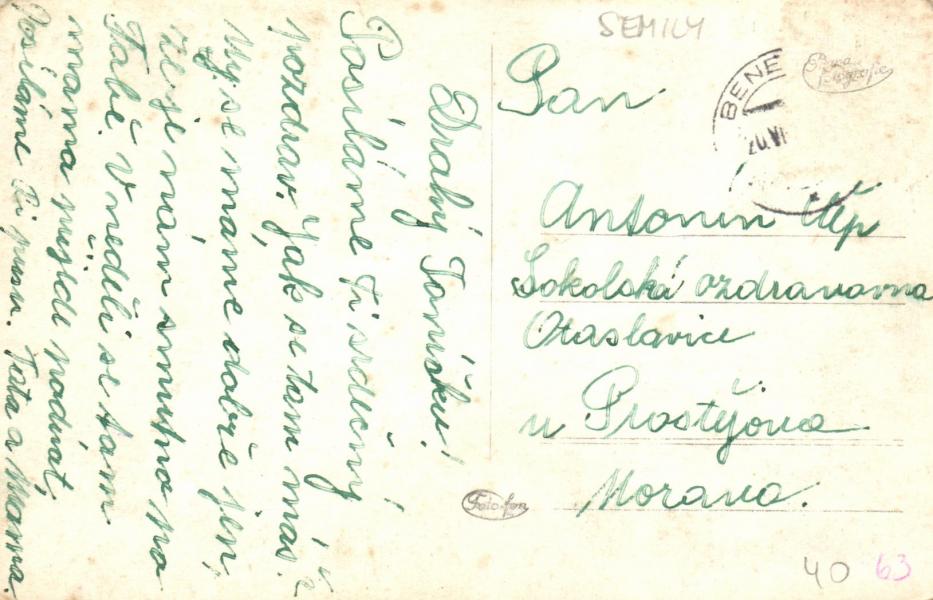 SEMILY
BENE
20.VI
Pan
Antonín Čép
Sokolská ozdravovna
Otaslavice
u Prostějova
Morava.
Drahý Toníčku!
Posíláme Ti srdečný
pozdrav. Jak se tam máš?
My se máme dobře jen,
že je nám smutno po
Tobě. V neděli se tam
mama přijde podívat,
Posíláme Ti pusu. Táta a Mama.
Fotofon
40 63